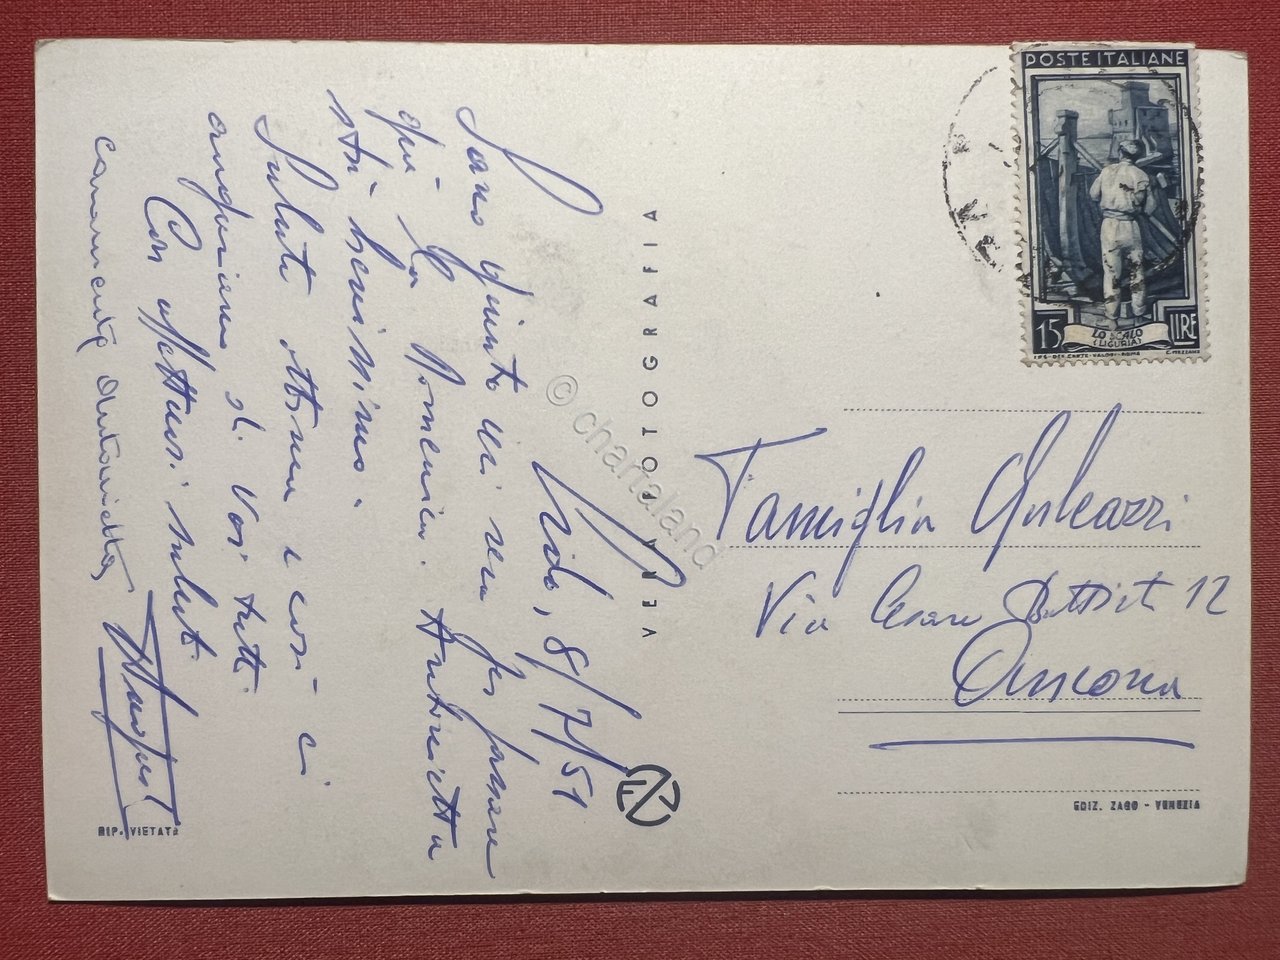 Lido, 8/7/51
Sono giunto ieri sera per passare
qui la Domenica. Antonietta
sta benissimo.
Salute ottima e così ci
auguriamo di Voi tutti
Con affettuosi saluti
caramente Antonietta
VERA FOTOGRAFIA
RIP. VIETATA
POSTE ITALIANE
15 LIRE
LO SCALO
(LIGURIA)
I.P.S. OFF. CARTE-VALORI-ROMA C. MEZZANA
Famiglia Galeazzi
Via Cesare Battisti 12
Ancona
EDIZ. ZAGO - VENEZIA
© chartaland